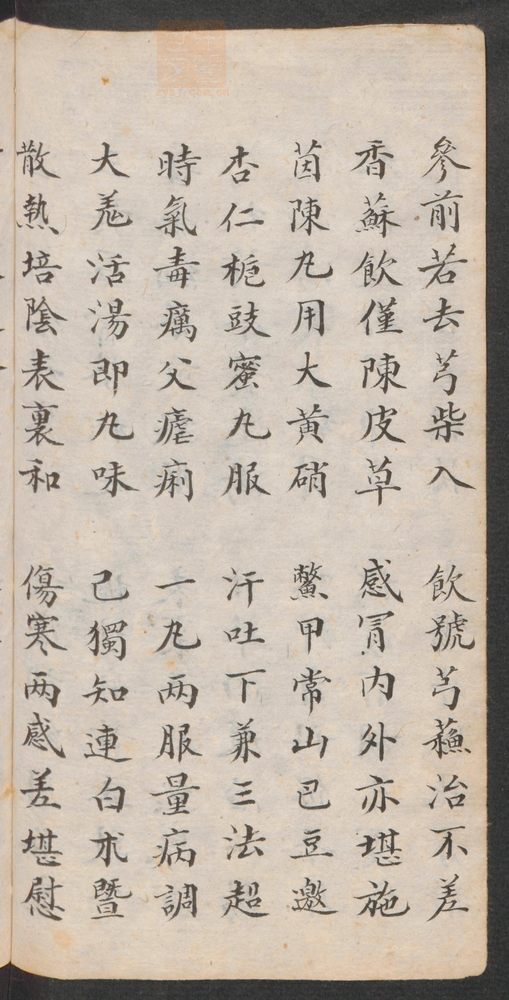 參前若去芎柴入 飲號芎蘓治不差
香蘇飲僅陳皮草 感冒內外亦堪施
茵陳丸用大黃硝 鱉甲常山巴豆邀
杏仁梔豉蜜丸服 汗吐下兼三法超
時氣毒癘父瘧痢 一丸两服量病調
大羗活湯即九味 己獨知連白朮暨
散熱培陰表裏和 傷寒两感差堪慰